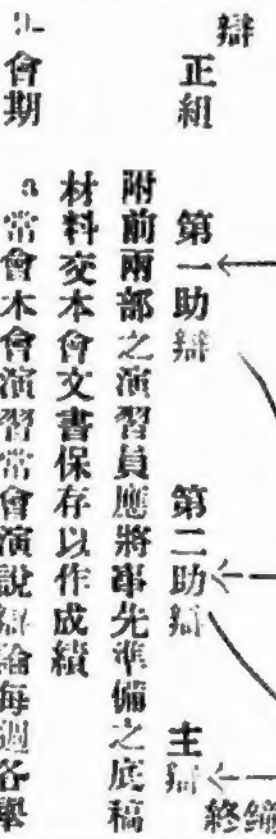 辯
終結
正組 第一助辯 第二助辯 主辯
附前兩部之演習員應將事先準備之底稿
材料交本會文書保存以作成績
9. 會期
a 常會木會演習常會演說辯論每週各舉